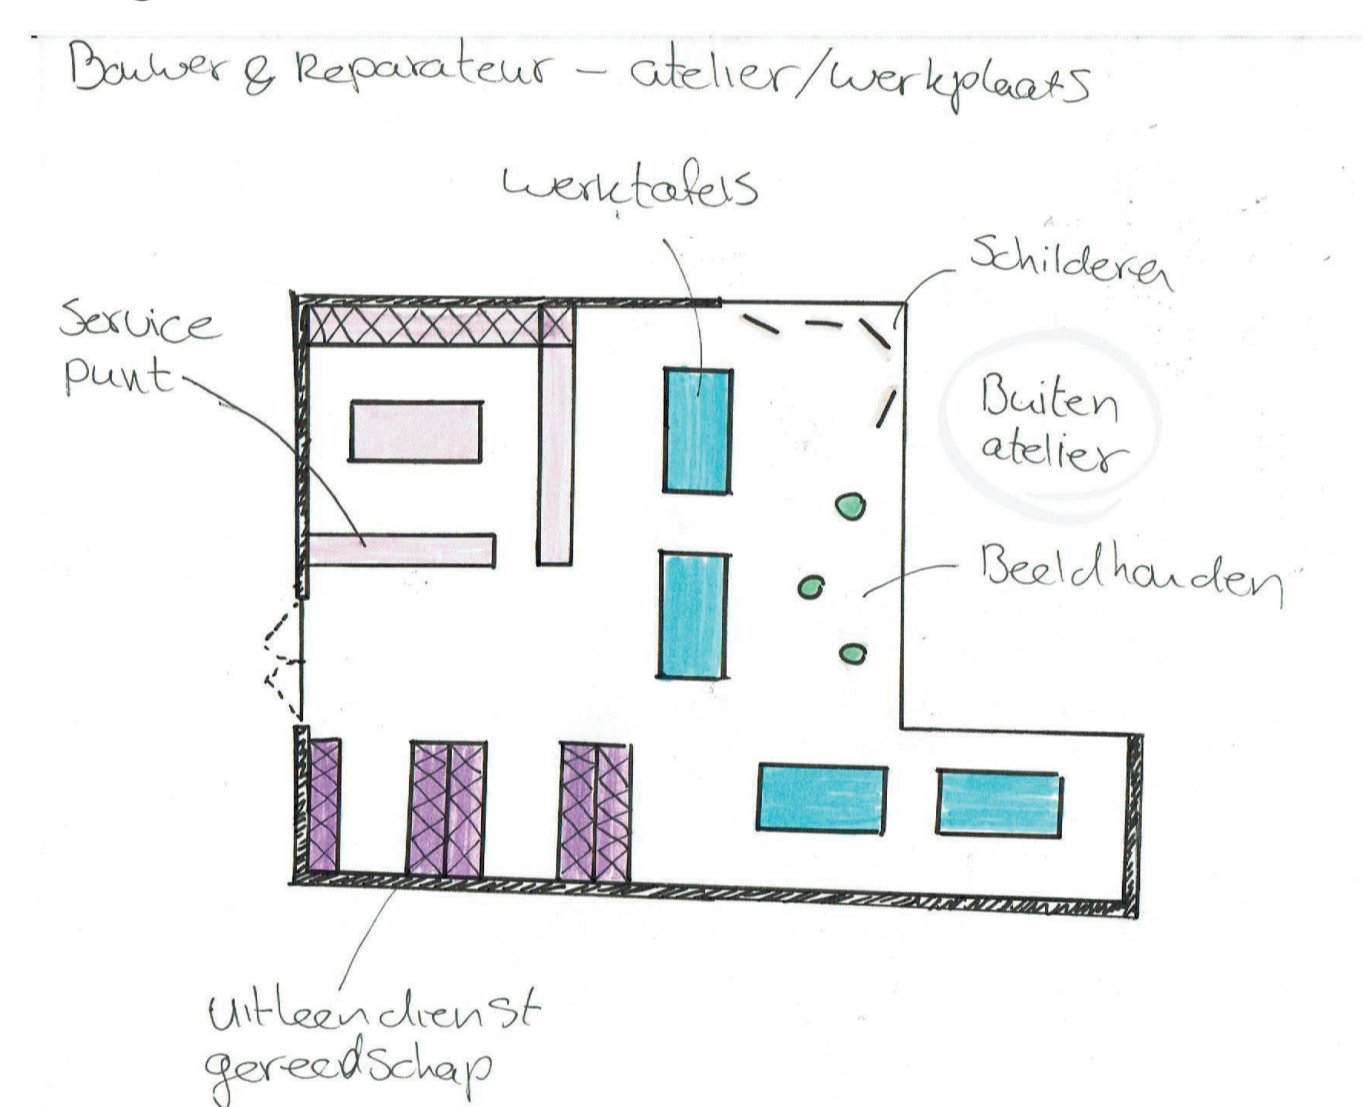 Bouwer & Reparateur – atelier/werkplaats
werktafels
Schilderen
Service
punt
Buiten
atelier
Beeldhouden
Uitleendienst
gereedschap